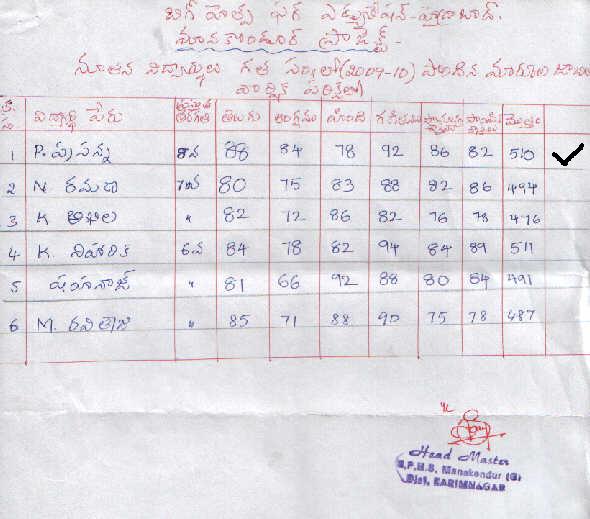 బిగ్ హెల్ప్ ఫర్ ఎడ్యుకేషన్-హైదరాబాద్.
మానకొండూర్ ప్రాజెక్ట్ -
నూతన విద్యార్థులు గత సం॥లో (2009-10) పొందిన మార్కుల
వార్షిక పరీక్షలో)
విద్యార్థి పేరు తరగతి తెలుగు ఆంగ్లము హింది గణితము మొత్తం
1 P. ప్రసన్న 8వ 88 84 78 92 86 82 510
2 N. రమదా 7వ 80 75 83 88 82 86 494
3 K అఖిల " 82 72 86 82 76 78 476
4 K. నిహారిక 6వ 84 78 82 94 84 89 511
5 షహనాజ్ " 81 66 92 88 80 84 491
6 M. రవితేజ " 85 71 88 90 75 78 487
Head Master
Z.P.H.S. Manakondur (G)
Dist. KARIMNAGAR